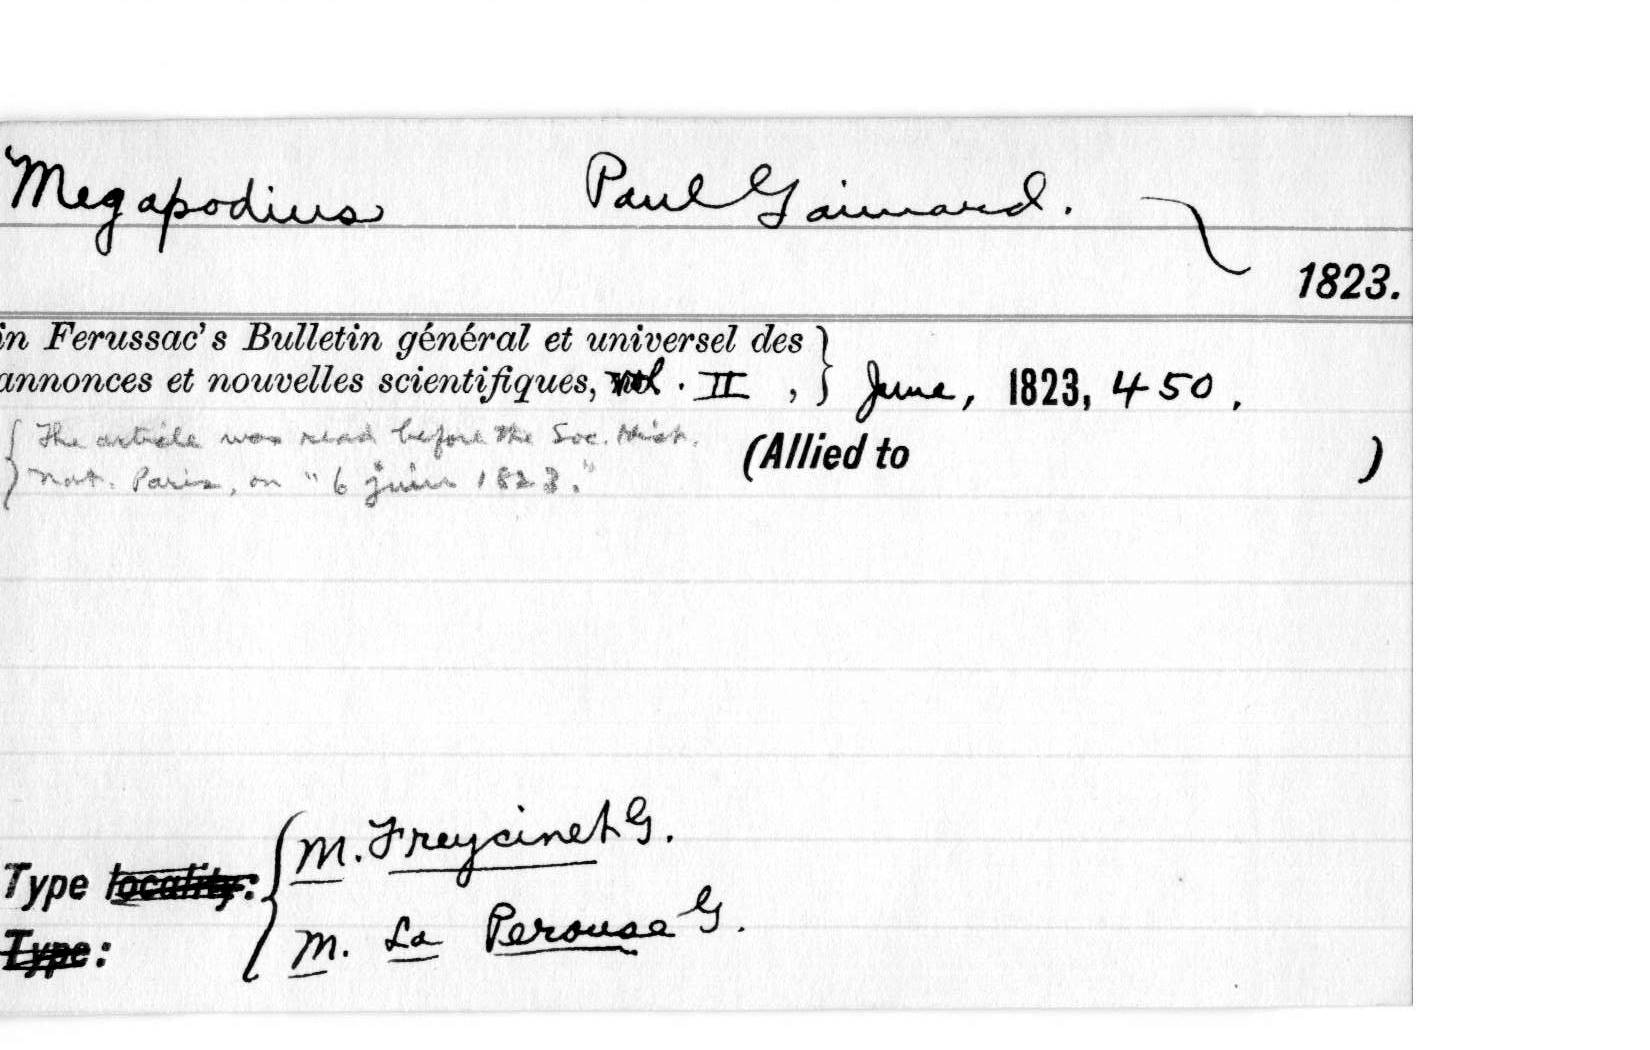 Megapodius Paul Gaimard.
1823.
in Ferussac's Bulletin général et universel des
annonces et nouvelles scientifiques, vol. II, } June, 1823, 450.
{ The article was read before the Soc. Hist.
Nat. Paris, on "6 juin 1823."
(Allied to )
Type locality: { M. Freycinet G.
Type: M. La Perouse G.